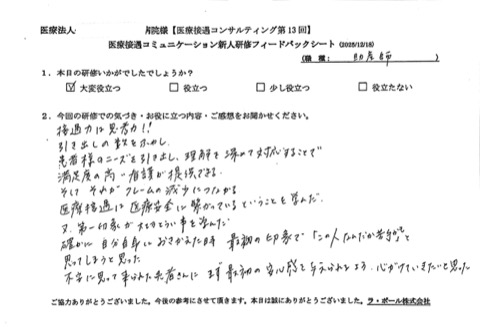 医療法人 病院様【医療接遇コンサルティング第13回】
医療接遇コミュニケーション新人研修フィードバックシート (2025/12/18)
(職種: 助産師 )
1.本日の研修いかがでしたでしょうか?
☑ 大変役立つ □ 役立つ □ 少し役立つ □ 役立たない
2.今回の研修での気づき・お役に立つ内容・ご感想をお聞かせください。
接遇力は思考力!!
引き出しの数を増やし
患者様のニーズを引き出し、理解を深めて対応することで
満足度の高い看護が提供できる
そして それがクレームの減少につながる
医療接遇は医療安全に繋がっているということを学んだ.
又、第一印象が大切という事を学んだ
確かに 自分自身におきかえた時 最初の印象で「この人なんだか苦手かも」と
思ってしまうと思った
不安に思って来られた患者さんに まず最初の安心感を与えられるよう 心がけていきたいと思った
ご協力ありがとうございました。今後の参考にさせて頂きます。本日は誠にありがとうございました。 ラ・ポール株式会社